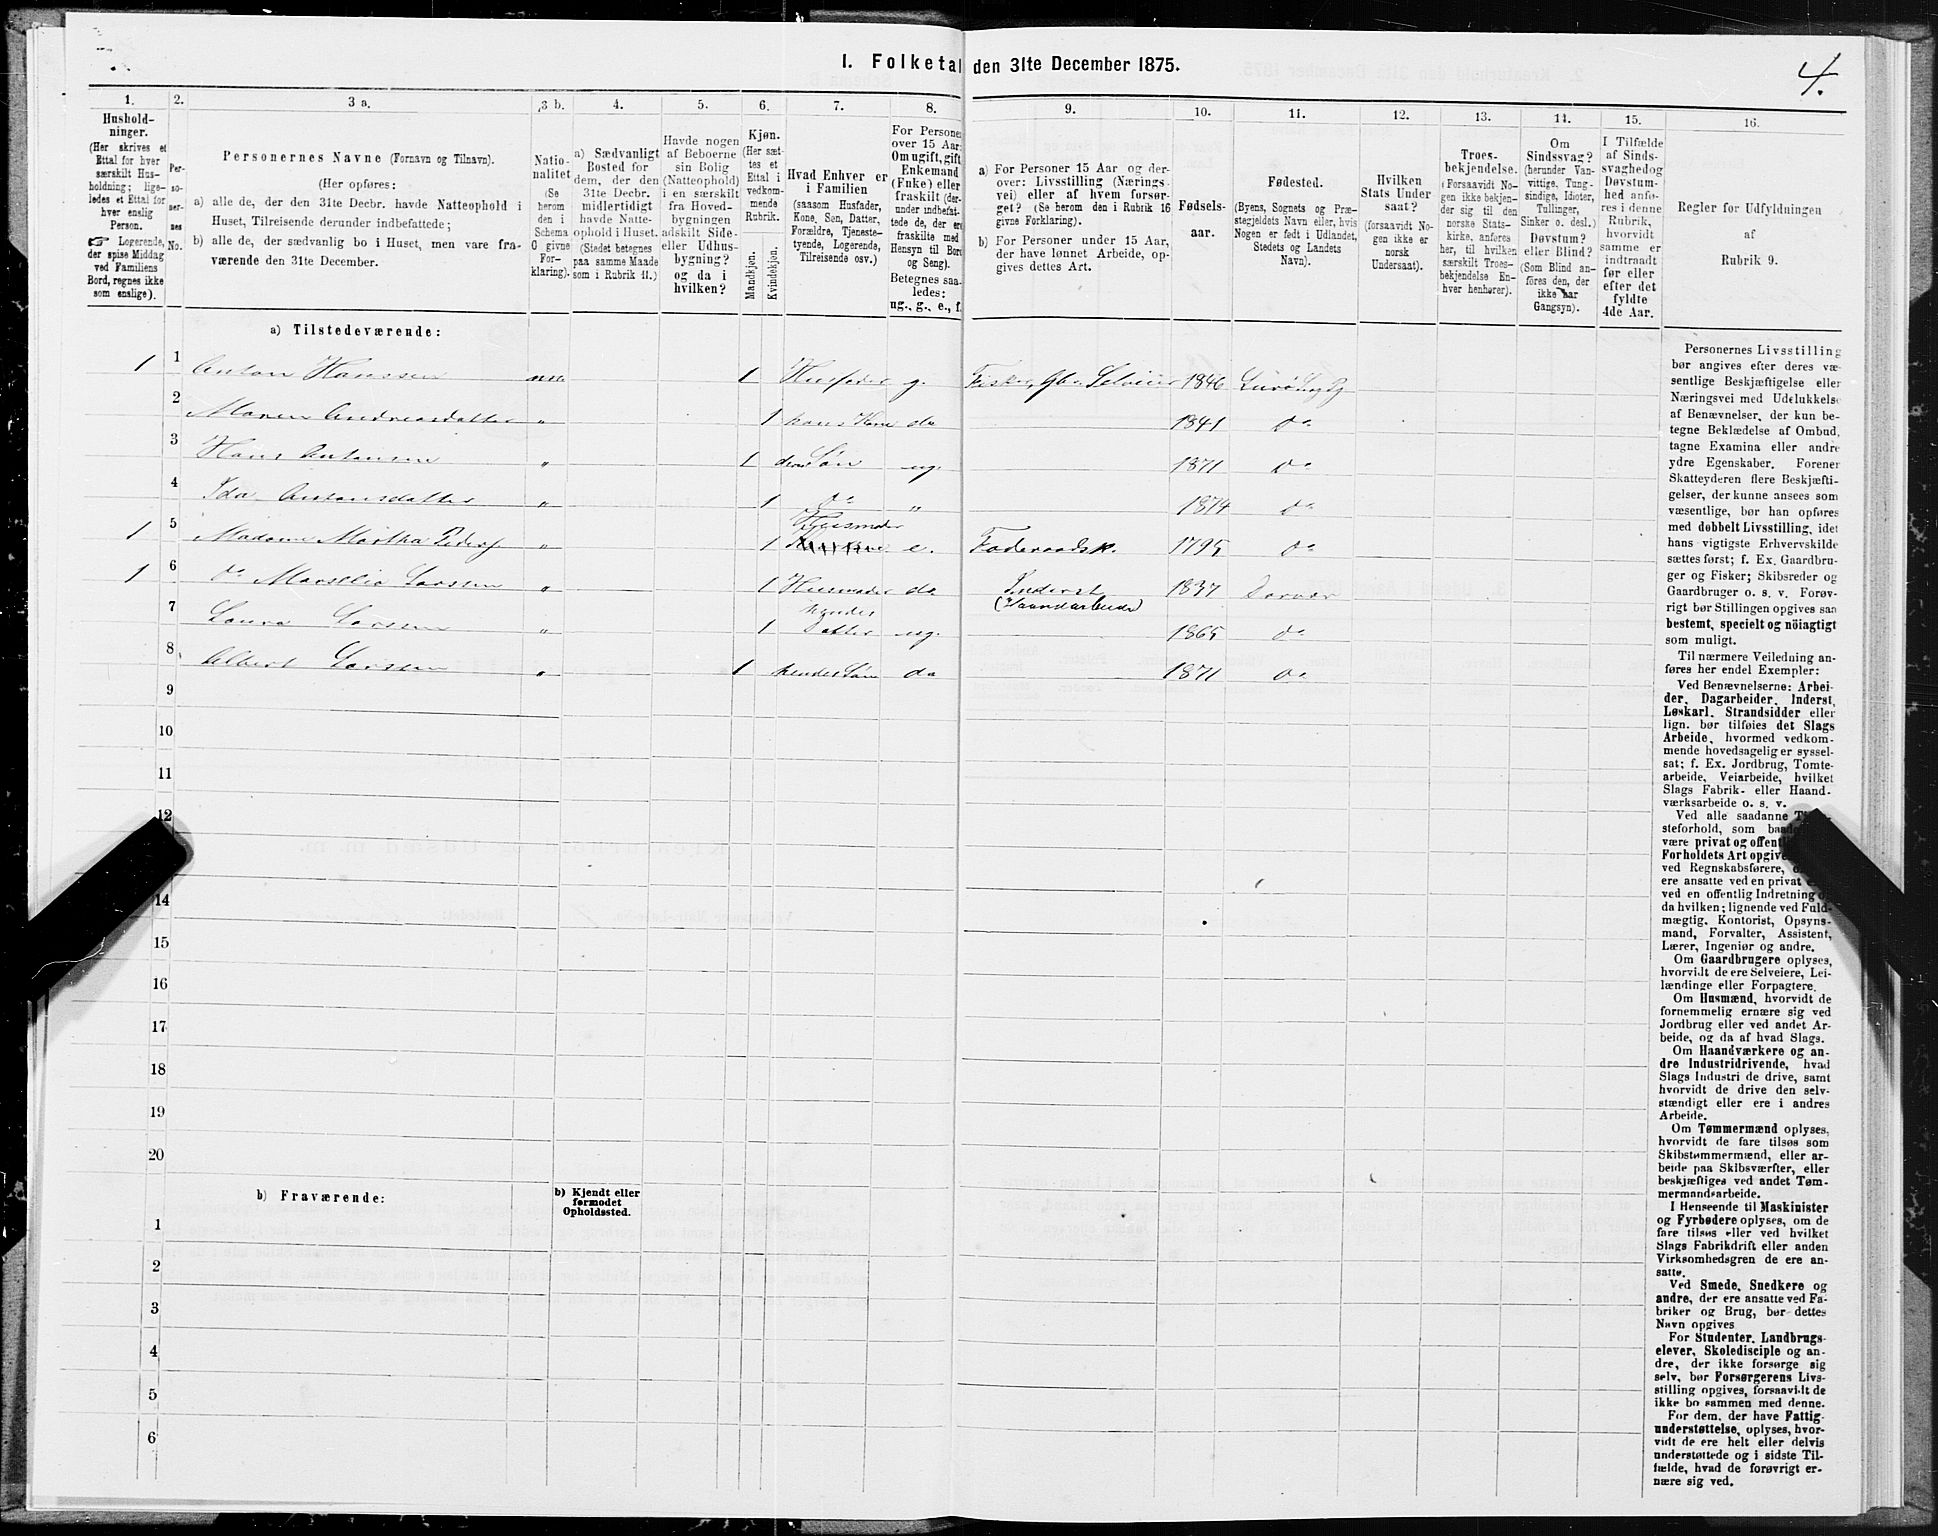 1. Folketal den 31te December 1875.
4.
1. 2. 3 a. 3 b. 4. 5. 6. 7. 8. 9. 10. 11. 12. 13. 14. 15. 16.
Hushold-
ninger.
(Her skrives et
Ettal for hver
særskilt Hus-
holdning; lige-
ledes et Ettal for
hver enslig
Person.
☞ Logerende,
der spise Middag
ved Familiens
Bord, regnes ikke
som enslige).
Per-
so-
ner-
nes
No.
Personernes Navne (Fornavn og Tilnavn).
(Her opføres:
a) alle de, der den 31te Decbr. havde Natteophold i
Huset, Tilreisende derunder indbefattede;
b) alle de, der sædvanlig bo i Huset, men vare fra-
værende den 31te December.
Natio-
nalitet
(Se
herom
den i
Schema
G givne
For-
klaring).
a) Sædvanligt
Bosted for
dem, der den
31te Decbr.
midlertidigt
havde Natte-
ophold i Huset.
(Stedet betegnes
paa samme Maade
som i Rubrik 11.)
Havde nogen
af Beboerne
sin Bolig
(Natteophold)
i en særskilt
fra Hoved-
bygningen
adskilt Side-
eller Udhus-
bygning?
og da i
hvilken?
Kjøn.
(Her sæt-
tes et
Ettal i
vedkom-
mende
Rubrik.
Mandkjøn.
Kvindekjøn.
Hvad Enhver er
i Familien
(saasom Husfader,
Kone, Søn, Datter,
Forældre, Tjeneste-
tyende, Logerende,
Tilreisende osv.)
For Personer
over 15 Aar:
Om ugift, gift,
Enkemand
(Enke) eller
fraskilt (der-
under indbefat-
tede de, der ere
fraskilte med
Hensyn til Bord
og Seng).
Betegnes saa-
ledes:
ug., g., e., f.
a) For Personer 15 Aar og der-
over: Livsstilling (Nærings-
vei) eller af hvem forsør-
get? (Se herom den i Rubrik 16
givne Forklaring).
b) For Personer under 15 Aar,
der have lønnet Arbeide, op-
gives dettes Art.
Fødsels-
aar.
Fødested.
(Byens, Sognets og Præ-
stegjeldets Navn eller, hvis
Nogen er født i Udlandet,
Stedets og Landets
Navn).
Hvilken
Stats Under
saat?
(forsaavidt No-
gen ikke er
norsk
Undersaat).
Troes-
bekjendelse.
(Forsaavidt No-
gen ikke bekjen-
der sig til den
norske Stats-
kirke, anføres
her, til hvilken
særskilt Troes-
bekjendelse En-
hver henhører).
Om
Sindssvag?
(herunder Van-
vittige, Tung-
sindige, Idioter,
Tullinger,
Sinker o. desl.)
Døvstum?
eller Blind?
(Som Blind an-
føres den, der
ikke har
Gangsyn).
I Tilfælde
af Sinds-
svaghed og
Døvstum-
hed anfø-
res i denne
Rubrik,
hvorvidt
samme er
indtraadt
før eller
efter det
fyldte
4de Aar.
Regler for Udfyldningen
af
Rubrik 9.
a) Tilstedeværende:
1 1 Anton Hanssen no. 1 Husfader g. Fisker, Gbr Selveier 1846 Lurö
2 Maren Andreasdatter " 1 hans Kone do 1841 Do
3 Hans Antonsen " 1 deres Søn ug. 1871 Do
4 Ida Antonsdatter " 1 Do " 1874 Do
1 5 Madame Martha Peders " 1 Husmoder e. Foderaadsk. 1795 Do
1 6 Do Marselia Larssen " 1 Husmoder do Inderst (Haandarbeide) 1837
7 Laura Larssen " 1 hendes Datter ug. 1865 Do
8 Albert Larssen " 1 hendes Søn do 1871 Do
9
10
11
12
14
15
16
17
18
19
20
b) Fraværende:
b) Kjendt eller
formodet
Opholdssted.
1
2
3
4
5
6
Personernes Livsstilling
bør angives efter deres væ-
sentlige Beskjæftigelse eller
Næringsvei med Udelukkelse
af Benævnelser, der kun be-
tegne Beklædelse af Ombud,
tagne Examina eller andre
ydre Egenskaber. Forener
Skatteyderen flere Beskjæfti-
gelser, der kunne ansees som
væsentlige, bør han opføres
med dobbelt Livsstilling, idet
hans vigtigste Erhvervskilde
sættes først; f. Ex. Gaardbru-
ger og Fisker; Skibsreder og
Gaardbruger o. s. v. Forøv-
rigt bør Stillingen opgives saa
bestemt, specielt og nöiagtigt
som muligt.
Til nærmere Veiledning an-
føres her endel Exempler:
Ved Benævnelserne: Arbei-
der, Dagarbeider, Inderst,
Løskarl, Strandsidder eller
lign. bør tilføies det Slags
Arbeide, hvormed vedkom-
mende hovedsagelig er syssel-
sat; f. Ex. Jordbrug, Tomte-
arbeide, Veiarbeide, hvilket
Slags Fabrik- eller Haand-
værksarbeide o. s. v.
Ved alle saadanne
steforhold, som
være privat og
Forholdets Art
ved Regnskabsførere,
ere ansatte ved en privat
ved en offentlig Indretning
da hvilken; lignende ved Fuld-
mægtig, Kontorist, Opsyns-
mand, Forvalter, Assistent,
Lærer, Ingeniør og andre.
Om Gaardbrugere oplyses,
hvorvidt de ere Selveiere, Lei-
lændinge eller Forpagtere.
Om Husmænd, hvorvidt de
fornemmelig ernære sig ved
Jordbrug eller ved andet Ar-
beide, og da af hvad Slags.
Om Haandværkere og an-
dre Industridrivende, hvad
Slags Industri de drive, samt
hvorvidt de drive den selv-
stændigt eller ere i andres
Arbeide.
Om Tømmermænd oplyses,
hvorvidt de fare tilsøs som
Skibstømmermænd, eller ar-
beide paa Skibsværfter, eller
beskjæftiges ved andet Tøm-
mermandsarbeide.
I Henseende til Maskinister
og Fyrbødere oplyses, om de
fare tilsøs eller ved hvilket
Slags Fabrikdrift eller anden
Virksomhedsgren de ere an-
satte.
Ved Smede, Snedkere og
andre, der ere ansatte ved Fa-
briker og Brug, bør dettes
Navn opgives
For Studenter, Landbrugs-
elever, Skoledisciple og an-
dre, der ikke forsørge sig
selv, bør Forsørgerens Livs-
stilling opgives, forsaavidt de
ikke bo sammen med denne.
For dem, der have Fattig-
understøttelse, oplyses, hvor-
vidt de ere helt eller delvis
understøttede og i sidste Til-
fælde, hvad de forøvrigt er-
nære sig ved.